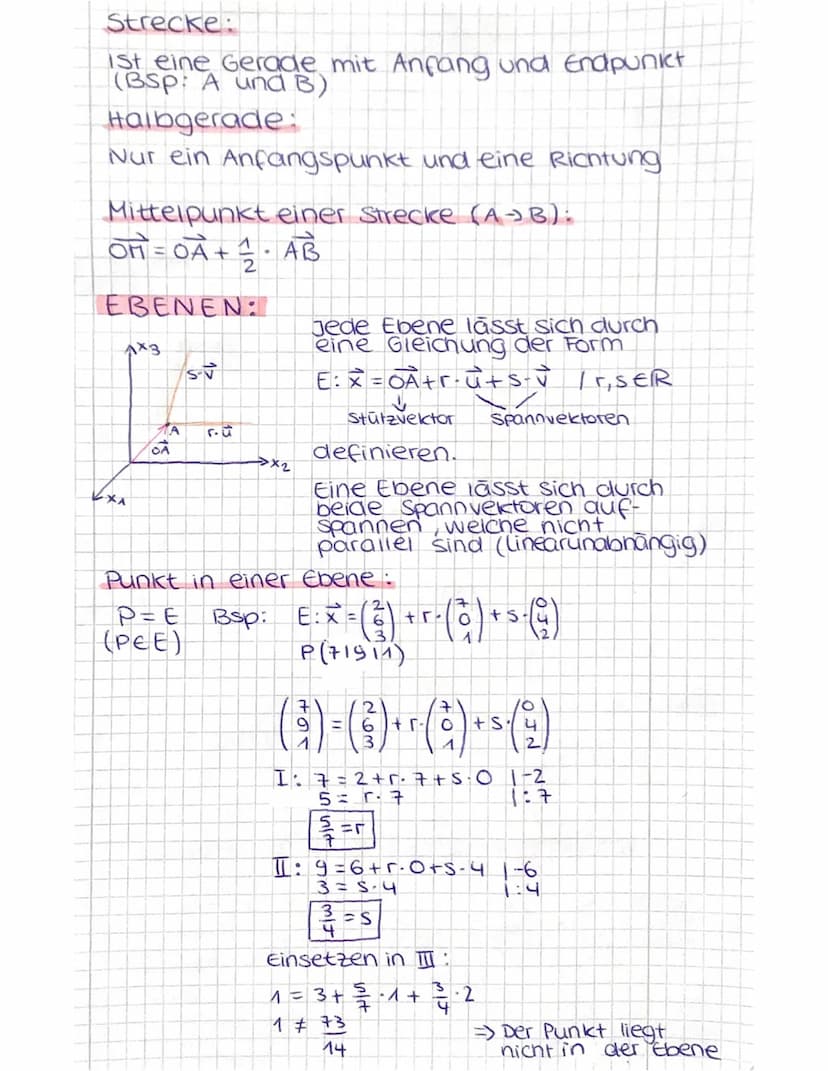 Strecke:
ist eine Gerade mit Anfang und Endpunkt
(Bsp: A und B)
Halbgerade:
Nur ein Anfangspunkt und eine Richtung
Mittelpunkt einer Strecke (A→B):
OM⃗ = OA⃗ + 1/2 · AB⃗
EBENEN:
Jede Ebene lässt sich durch
eine Gleichung der Form
E: x⃗ = OA⃗ + r·u⃗ + s·v⃗ / r,s∈ℝ
Stützvektor Spannvektoren
definieren.
x3
s·v⃗
A r·u⃗
OA⃗
x2
x1
Eine Ebene lässt sich durch
beide Spannvektoren auf-
spannen, welche nicht
parallel sind (linearunabhängig)
Punkt in einer Ebene:
P=E Bsp: E: x⃗ = (2 6 3) + r·(7 0 1) + s·(0 4 2)
(P∈E) P(7|9|1)
(7 9 1) = (2 6 3) + r·(7 0 1) + s·(0 4 2)
I: 7 = 2+r·7+s·0 |-2
5 = r·7 |:7
5/7 = r
II: 9=6+r·0+s·4 |-6
3 = s·4 |:4
3/4 = s
Einsetzen in III:
1 = 3 + 5/7 ·1 + 3/4 ·2
1 ≠ 73/14
⇒ Der Punkt liegt
nicht in der Ebene